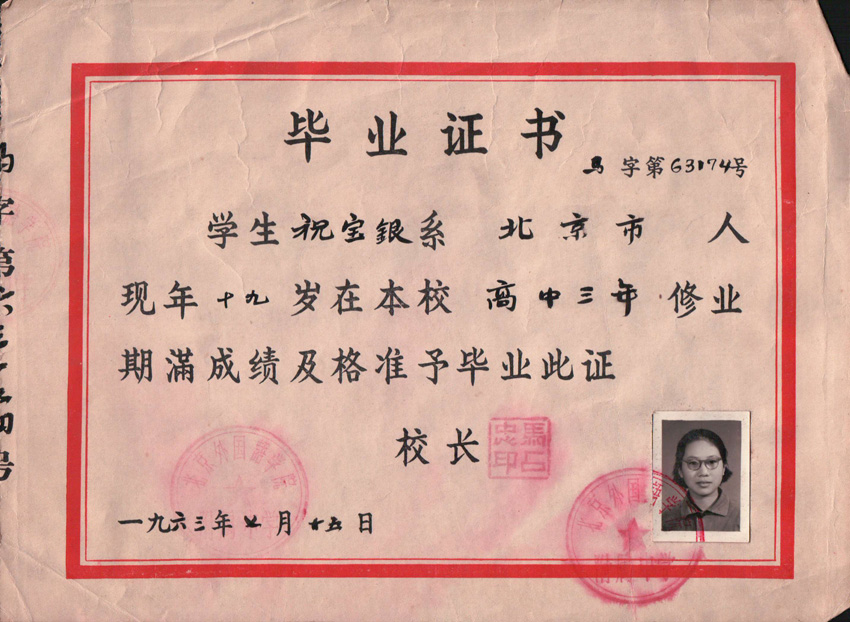 毕业证书
字第63174号
学生祝宝银系 北京市 人
现年十九岁在本校 高中三年 修业
期滿成绩及格准予毕业此证
校长
北京外国语学院
一九六三年 月十五日
北京外国语学院
附属中学
字第六三一 四号